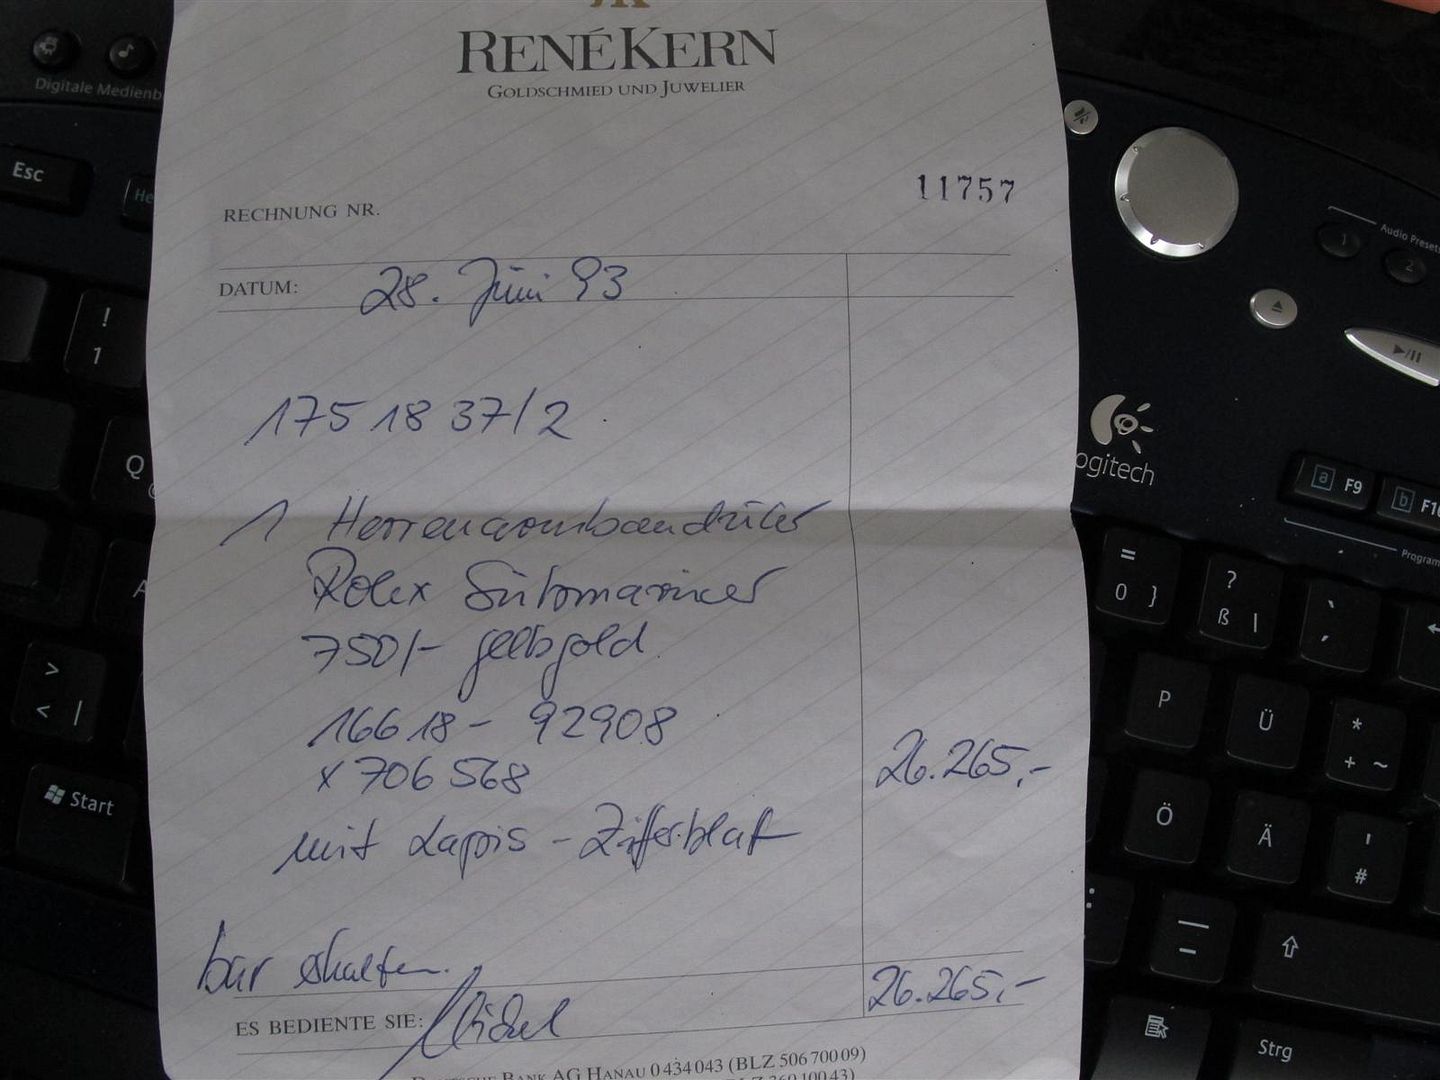 RENÉ KERN
GOLDSCHMIED UND JUWELIER
11757
RECHNUNG NR.
DATUM: 28. Juni 93
175 18 37/2
1 Herrenarmbanduhr
Rolex Submariner
750/- gelbgold
16618 - 92908
x 706 568
26.265,-
mit Lapis - Zifferblatt
bar erhalten.
26.265,-
ES BEDIENTE SIE:
BANK AG HANAU 0 434 043 (BLZ 506 700 09)
Digitale Medienb
Esc
He
! 1
Q
A
> < |
Start
Audio Presets
1
2
ogitech
a F9
b F10
Program
= 0 }
? ß \
` ´
P
Ü
* + ~
Ö
Ä
' #
:
_ -
Strg